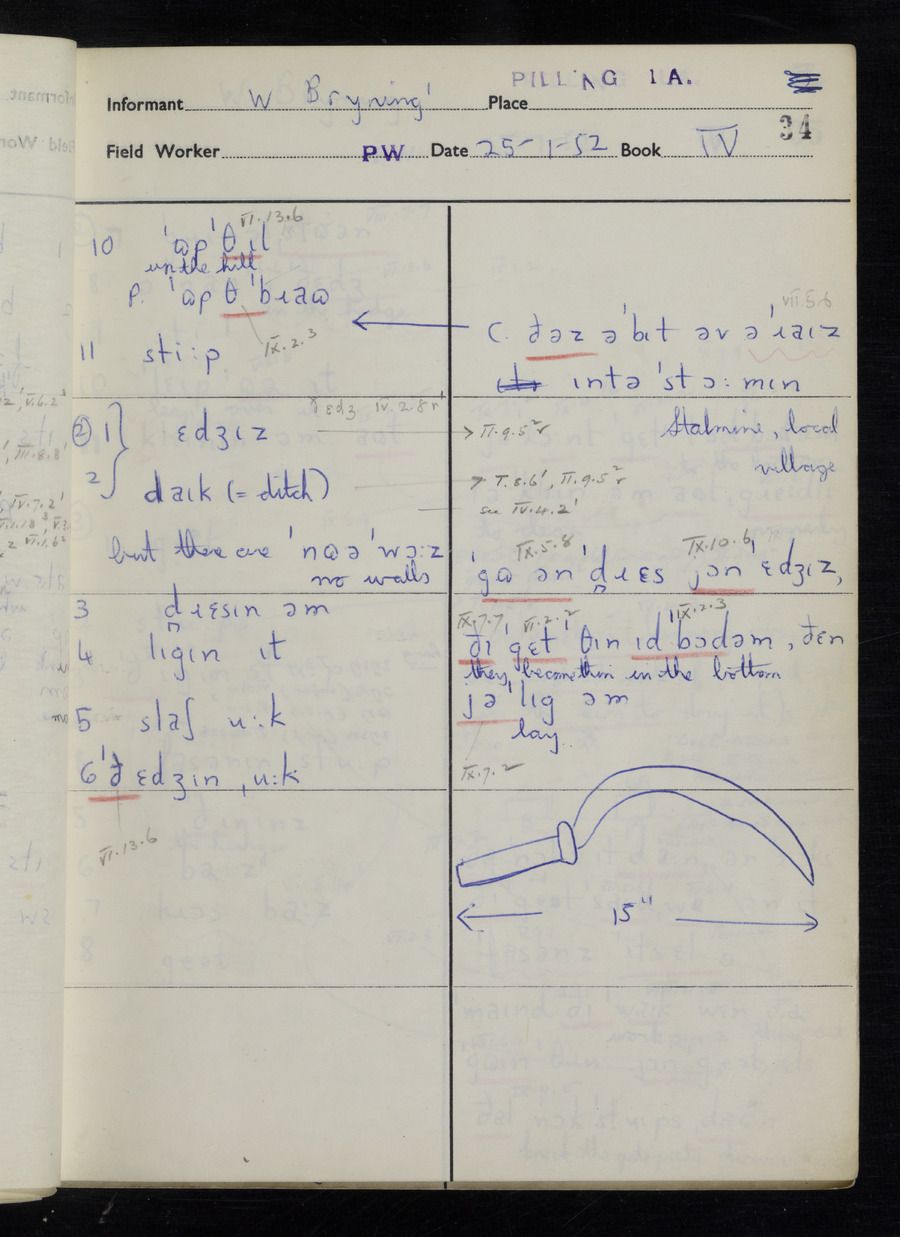 PILLING 1A.
Informant W Bryning Place
34
Field Worker PW Date 25-1-52 Book IV
VI.13.6
10 ˈɷpˈθ ɪl
up the hill
P. ˈɷp θ ˈbɹaɷ
IX.2.3
11 sti:p
VII.5.6
C. ðəz əˈbɪt əv əˈɹaɪz
ɪntə ˈstɔ:mɪn
Stalmine, local
village
ɛdʒ IV.2.8
② 1 ɛdʒɪz
> II.9.5² r
2 daɪk (= ditch)
> I.8.6¹, II.9.5² r
see IV.4.2¹
but there are ˈnɷə ˈwɔ:z
no walls
IX.5.8 IX.10.6
ˈgɷ ən d̪ɹɛs jən ɛdʒɪz,
3 d̪ɹɛsɪn əm
IX.7.7 VI.2.2 IX.2.3
ðɪ ˈgɛt ˈθɪn ɪd ˈbɔdəm, ðɛn
they become thin in the bottom
4 lɪgɪn ɪt
jə ˈlɪg əm
lay
IX.7.2
5 slaʃ u:k
6 ˈð ɛdʒɪn ˌu:k
VI.13.6
15"